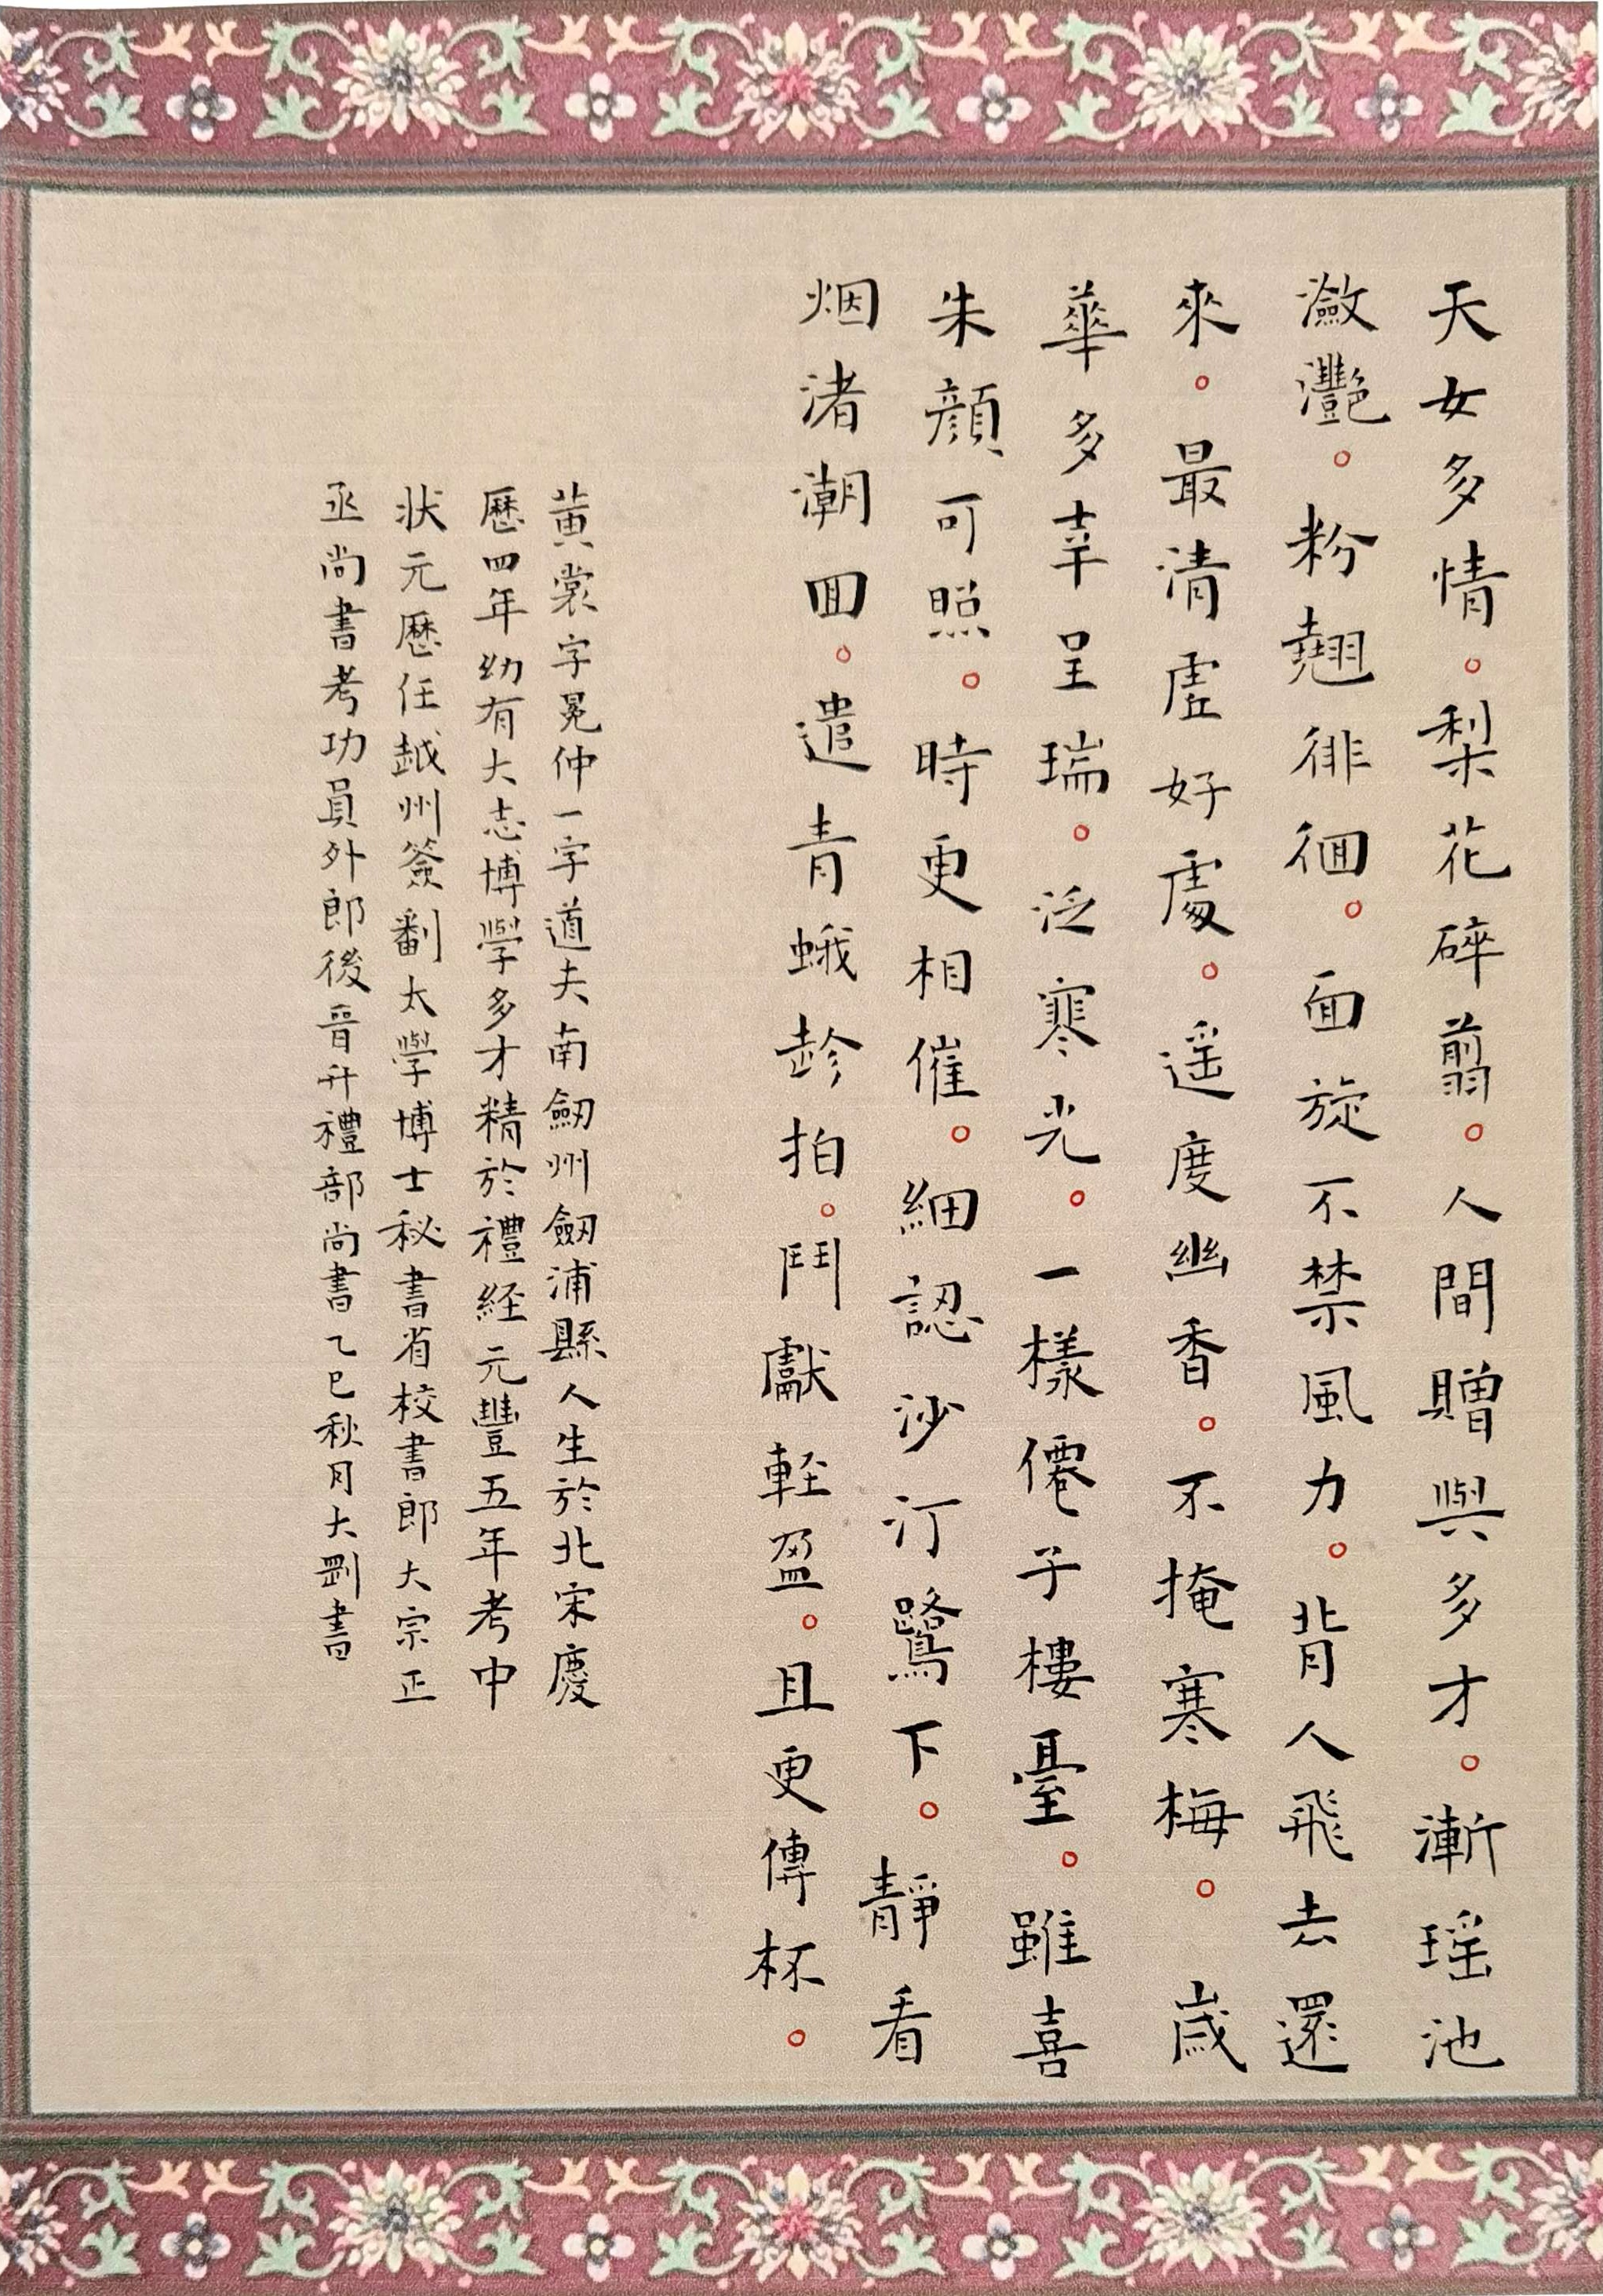 天女多情。梨花碎翦。人間贈與多才。漸瑶池
瀲灧。粉翹徘徊。面旋不禁風力。背人飛去還
來。最清虛好處。遥度幽香。不掩寒梅。 歲
華多幸呈瑞。泛寒光。一樣僊子樓臺。雖喜
朱顔可照。時更相催。細認沙汀鷺下。靜看
烟渚潮回。遣青蛾趁拍。鬥獻輕盈。且更傳杯。
黄裳字冕仲一字道夫南劒州劒浦縣人生於北宋慶
歷四年幼有大志博學多才精於禮経元豐五年考中
状元歷任越州簽劃太學博士秘書省校書郎大宗正
丞尚書考功員外郎後晉升禮部尚書乙巳秋月大剛書